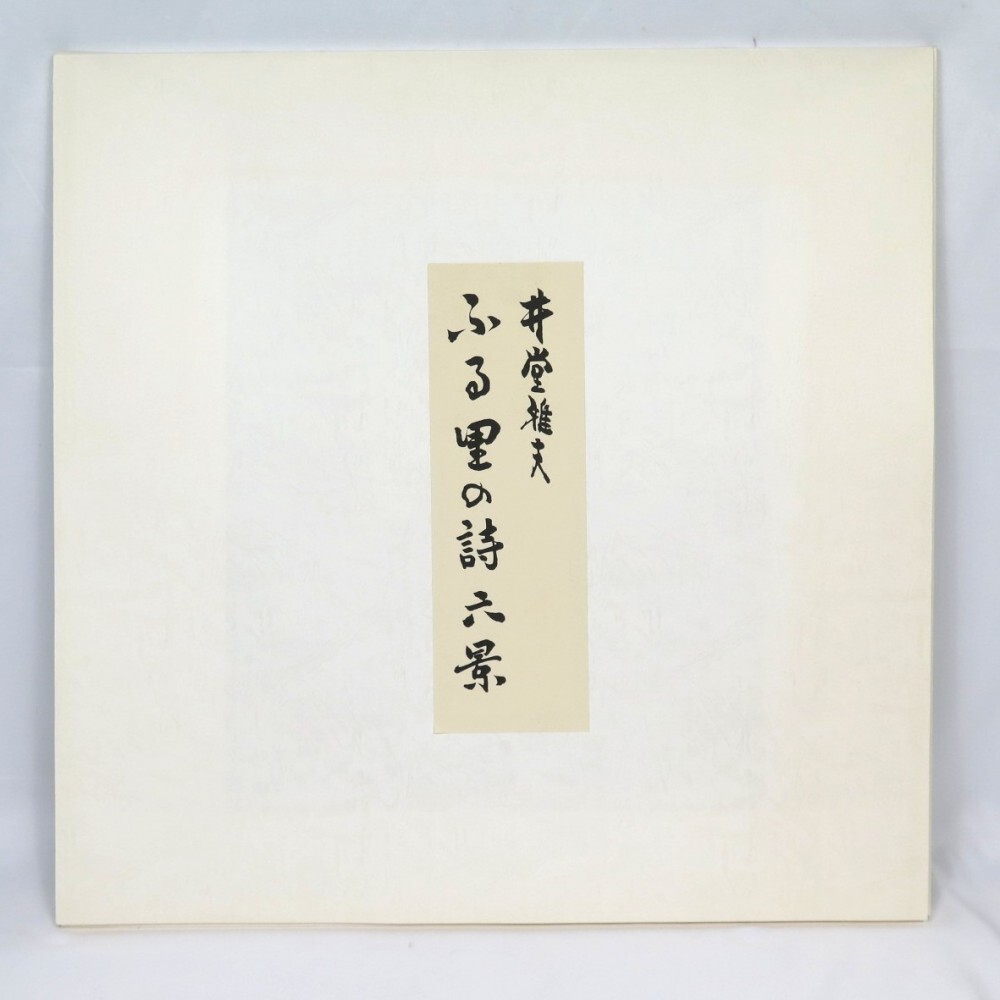 井堂雅夫
ふる里の詩六景